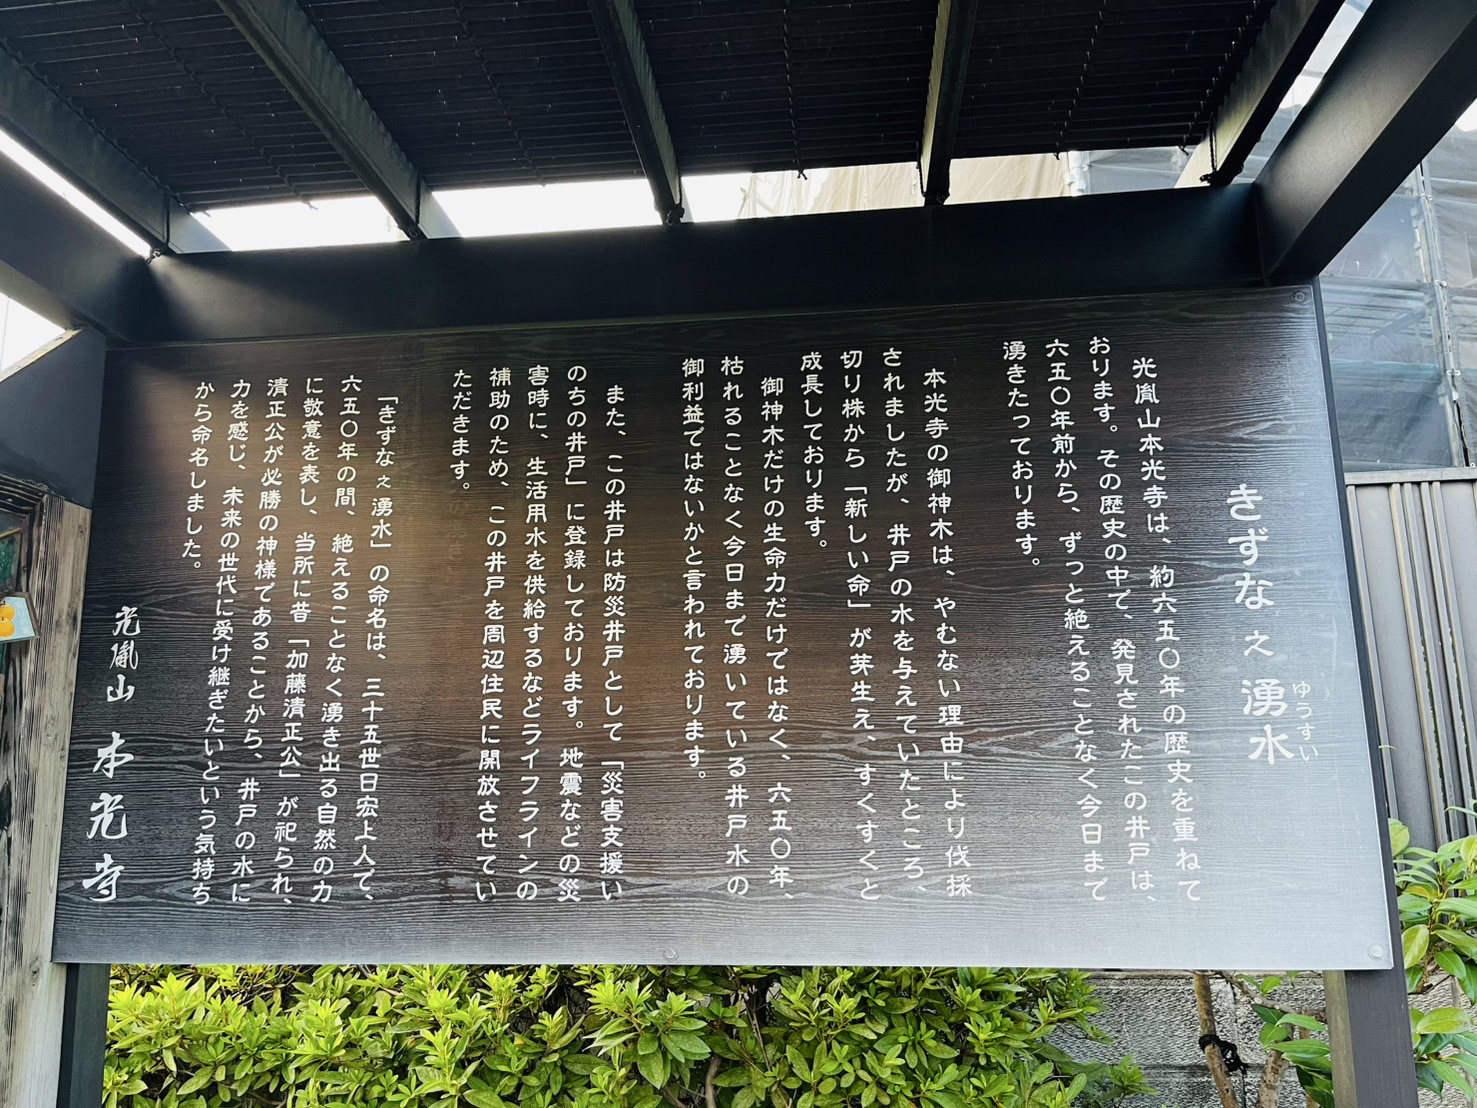 きずな之湧水
ゆうすい
光胤山本光寺は、約六五〇年の歴史を重ねて
おります。その歴史の中で、発見されたこの井戸は、
六五〇年前から、ずっと絶えることなく今日まで
湧きたっております。
本光寺の御神木は、やむない理由により伐採
されましたが、井戸の水を与えていたところ、
切り株から「新しい命」が芽生え、すくすくと
成長しております。
御神木だけの生命力だけではなく、六五〇年、
枯れることなく今日まで湧いている井戸水の
御利益ではないかと言われております。
また、この井戸は防災井戸として「災害支援い
のちの井戸」に登録しております。地震などの災
害時に、生活用水を供給するなどライフラインの
補助のため、この井戸を周辺住民に開放させてい
ただきます。
「きずな之湧水」の命名は、三十五世日宏上人で、
六五〇年の間、絶えることなく湧き出る自然の力
に敬意を表し、当所に昔「加藤清正公」が祀られ、
清正公が必勝の神様であることから、井戸の水に
力を感じ、未来の世代に受け継ぎたいという気持ち
から命名しました。
光胤山 本光寺